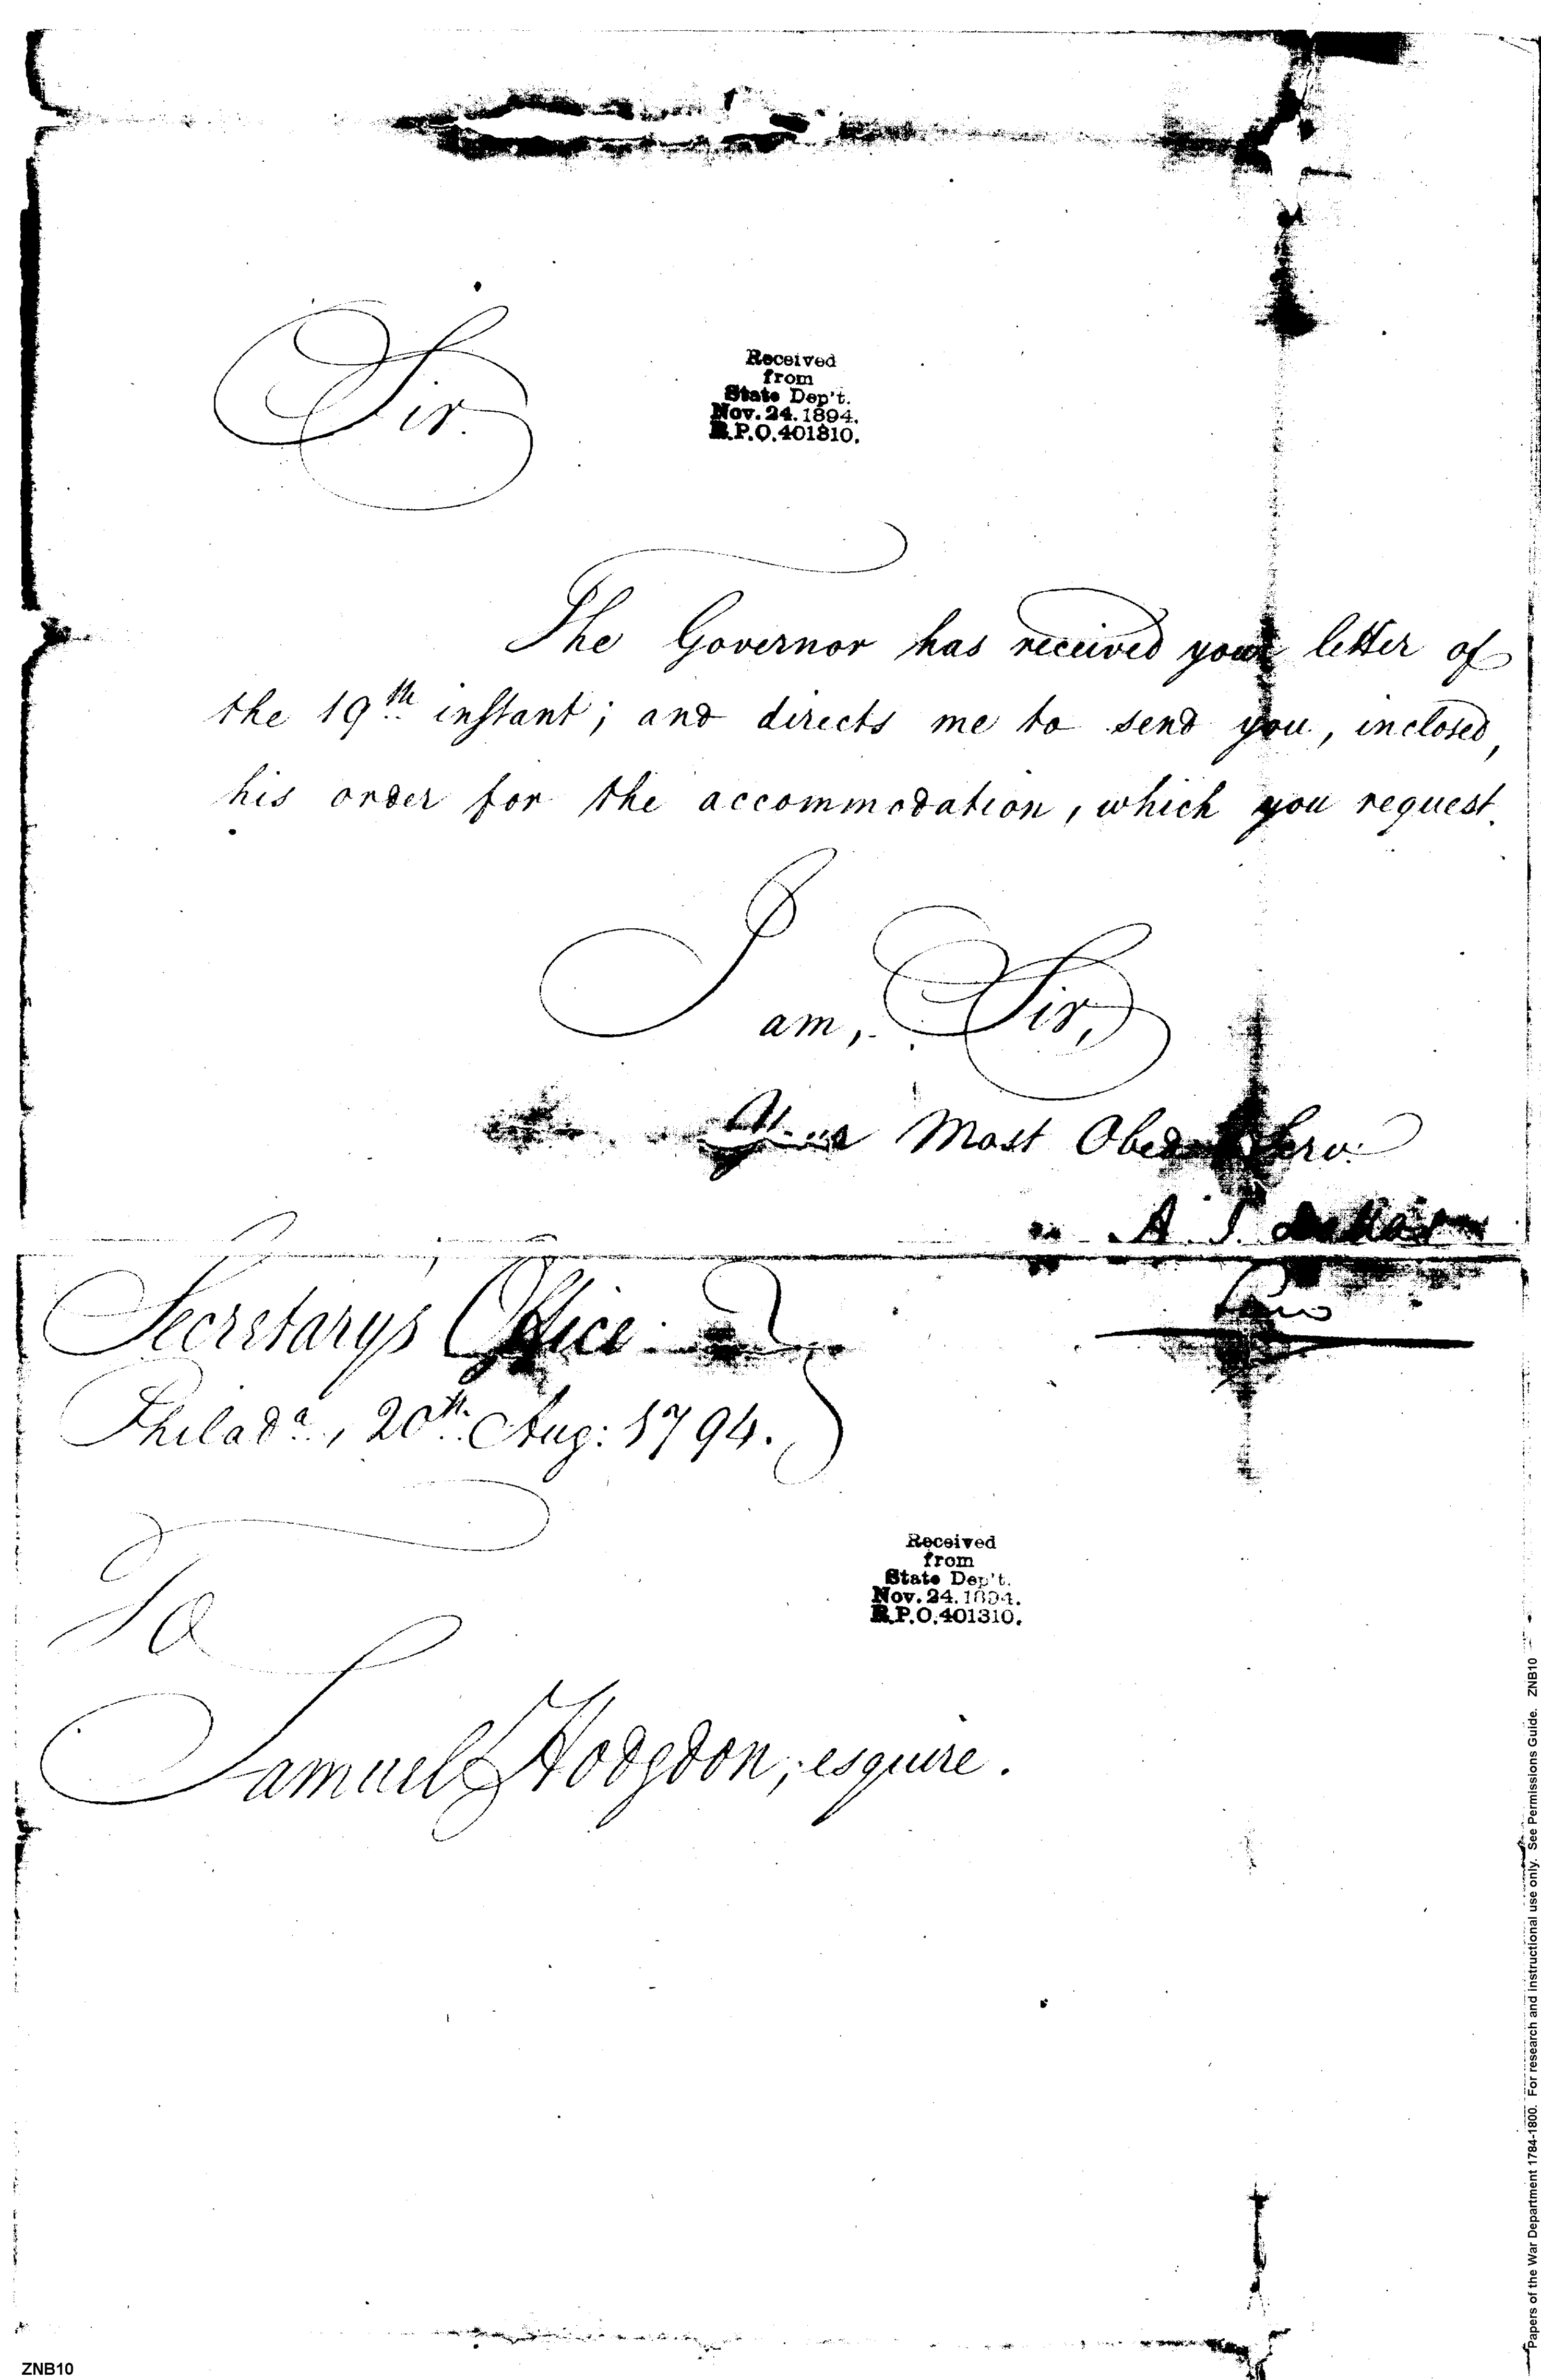 Sir.
Received
from
State Dep't.
Nov. 24. 1894.
R.P.O. 401310.
The Governor has received your letter of
the 19th instant; and directs me to send you, inclosed,
his order for the accommodation, which you request.
I am, Sir,
Your Most Obed Serv.
A. J. Dallas
Secretarys Office
Philada., 20th Aug: 1794.
Received
from
State Dep't.
Nov. 24. 1894.
R.P.O. 401310.
To
Samuel Hodgdon, esquire.
Papers of the War Department 1784-1800. For research and instructional use only. See Permissions Guide. ZNB10
ZNB10